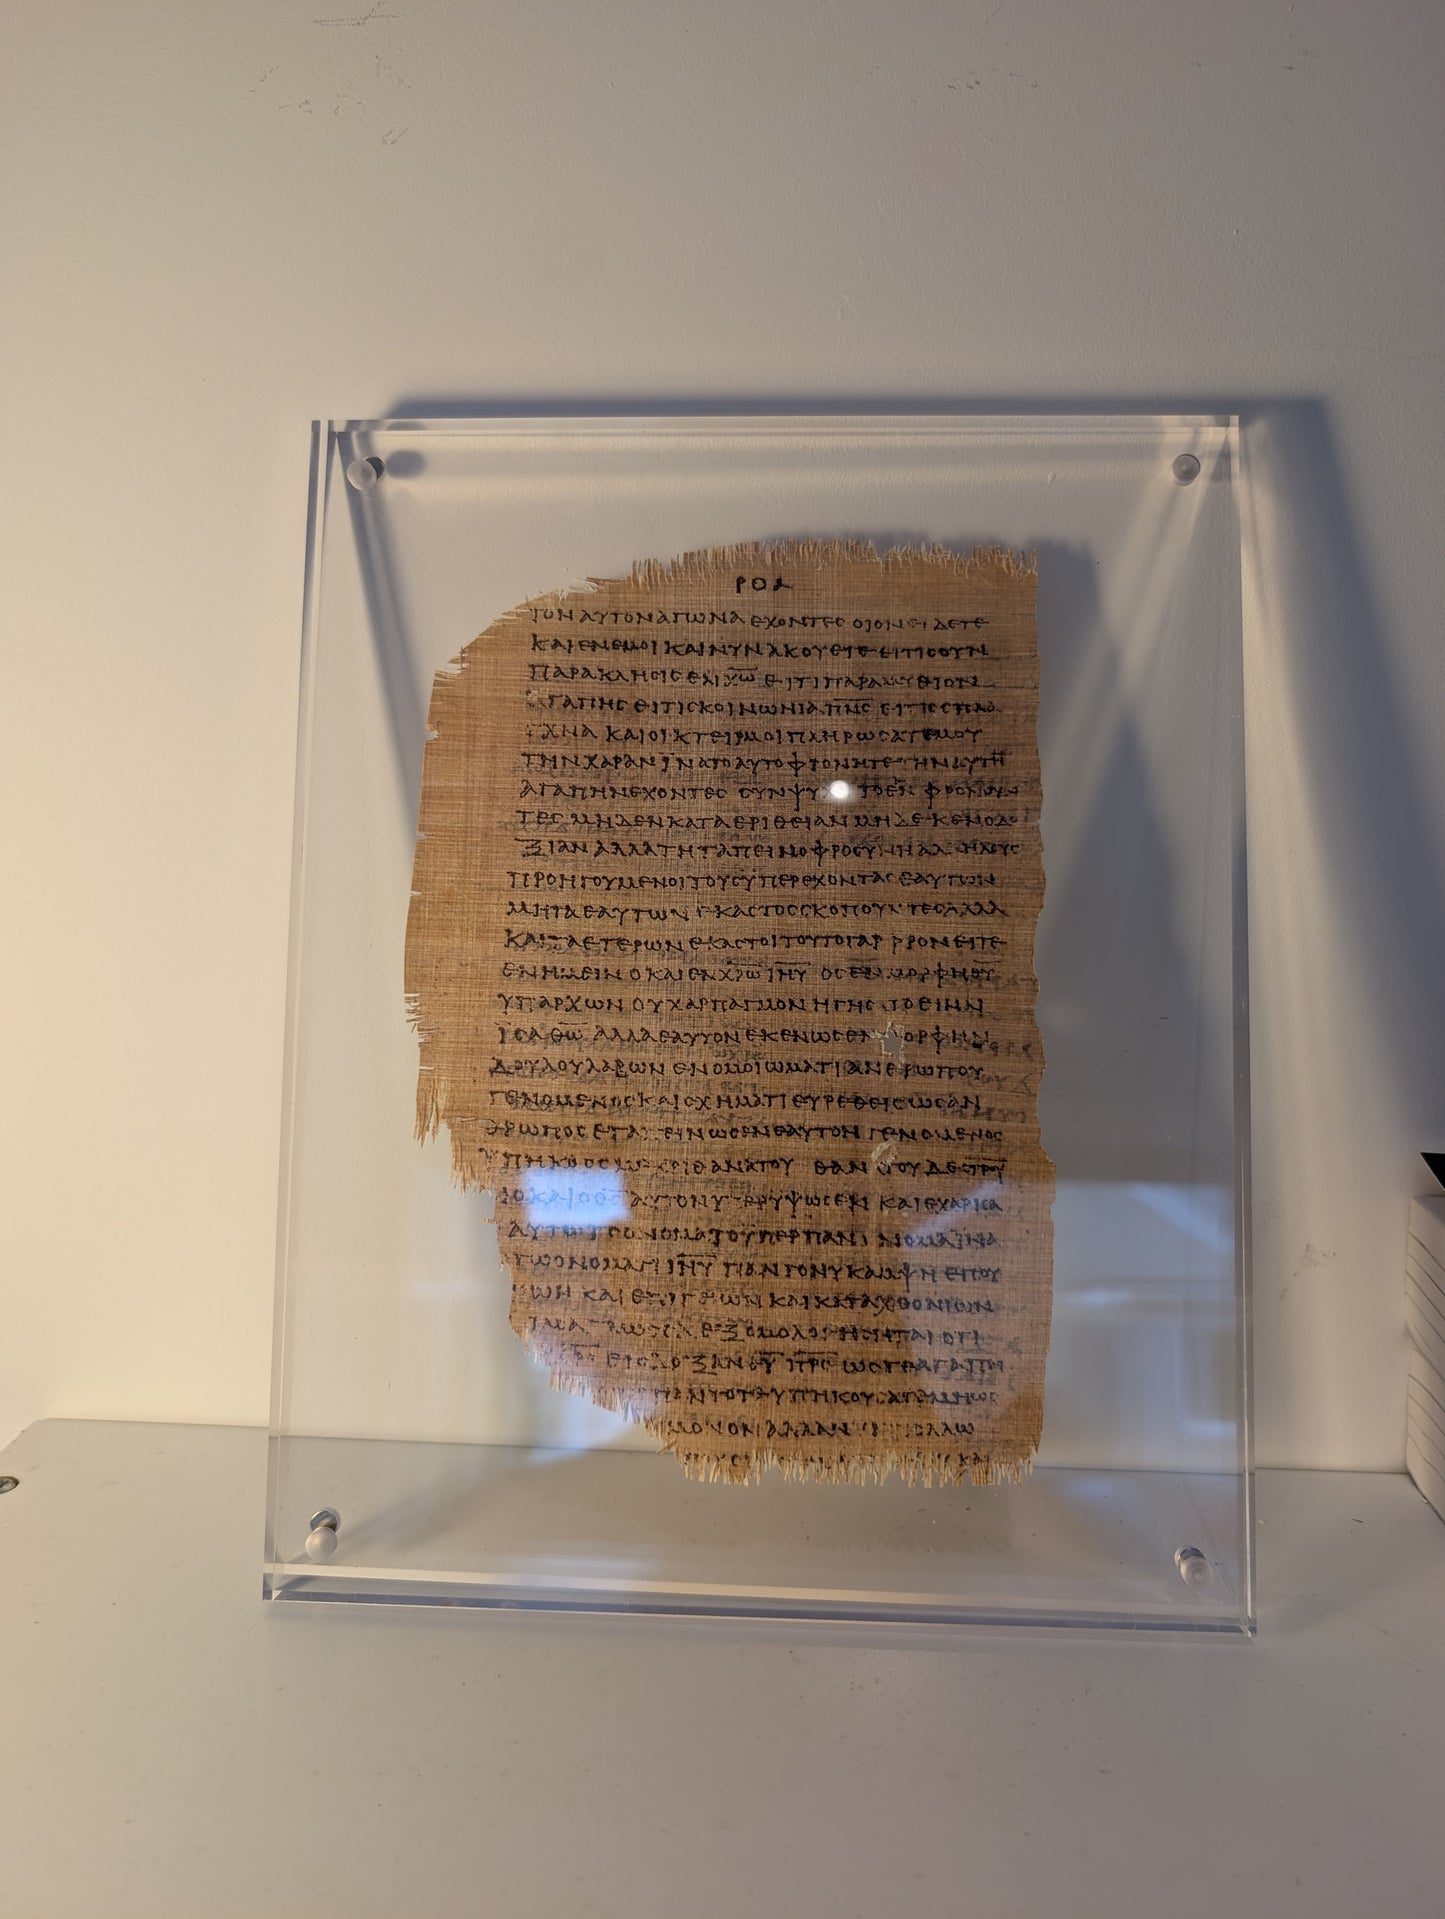 ΡΟΑ
ΤΟΝ ΑΥΤΟΝ ΑΓΩΝΑ ΕΧΟΝΤΕϹ ΟΙΟΝ ΕΙΔΕΤΕ
ΚΑΙ ΕΝ ΕΜΟΙ ΚΑΙ ΝΥΝ ΑΚΟΥΕΤΕ ΕΙ ΤΙϹ ΟΥΝ
ΠΑΡΑΚΛΗϹΙϹ ΕΝ Χ̅Ω̅ ΕΙ ΤΙ ΠΑΡΑΜΥΘΙΟΝ
ΑΓΑΠΗϹ ΕΙ ΤΙϹ ΚΟΙΝΩΝΙΑ Π̅Ν̅Ϲ̅ ΕΙ ΤΙϹ ϹΠΛΑ
ΓΧΝΑ ΚΑΙ ΟΙΚΤΕΙΡΜΟΙ ΠΛΗΡΩϹΑΤΕ ΜΟΥ
ΤΗΝ ΧΑΡΑΝ ΙΝΑ ΤΟ ΑΥΤΟ ΦΡΟΝΗΤΕ ΤΗΝ ΑΥΤΗ
ΑΓΑΠΗΝ ΕΧΟΝΤΕϹ ΤΟ ΕΝ
ΤΕϹ ΜΗΔΕΝ ΚΑΤΑ ΕΡΙΘΕΙΑΝ ΜΗΔΕ ΚΕΝΟΔΟ
ΞΙΑΝ ΑΛΛΑ ΤΗ ΤΑΠΕΙΝΟΦΡΟϹΥΝΗ ΑΛΛΗΛΟΥϹ
ΠΡΟΗΓΟΥΜΕΝΟΙ ΤΟΥϹ ΥΠΕΡΕΧΟΝΤΑϹ ΕΑΥΤΩΝ
ΜΗ ΤΑ ΕΑΥΤΩΝ ΕΚΑϹΤΟϹ ϹΚΟΠΟΥΝΤΕϹ ΑΛΛΑ
ΚΑΙ ΤΑ ΕΤΕΡΩΝ ΕΚΑϹΤΟΙ ΤΟΥΤΟ ΓΑΡ ΦΡΟΝΕΙΤΕ
ΕΝ ΗΜΕΙΝ Ο ΚΑΙ ΕΝ Χ̅Ρ̅Ω̅ Ι̅Η̅Υ̅ ΟϹ ΕΝ ΜΟΡΦΗ Θ̅Υ̅
ΥΠΑΡΧΩΝ ΟΥΧ ΑΡΠΑΓΜΟΝ ΗΓΗϹ ΤΟ ΕΙΝΑΙ
ΙϹΑ Θ̅Ω̅ ΑΛΛΑ ΕΑΥΤΟΝ ΕΚΕΝΩϹΕΝ ΜΟΡΦΗΝ
ΔΟΥΛΟΥ ΛΑΒΩΝ ΕΝ ΟΜΟΙΩΜΑΤΙ ΑΝΘΡΩΠΟΥ
ΓΕΝΟΜΕΝΟϹ ΚΑΙ ϹΧΗΜΑΤΙ ΕΥΡΕΘΕΙϹ ΩϹ ΑΝ
ΘΡΩΠΟϹ ΕΤΑΠΕΙΝΩϹΕΝ ΕΑΥΤΟΝ ΓΕΝΟΜΕΝΟϹ
ΥΠΗΚΟΟϹ ΜΕΧΡΙ ΘΑΝΑΤΟΥ ΘΑΝΑΤΟΥ ΔΕ ϹΤ̅Ρ̅Υ̅
ΔΙΟ ΚΑΙ Ο Θ̅Ϲ̅ ΑΥΤΟΝ ΥΠΕΡΥΨΩϹΕΝ ΚΑΙ ΕΧΑΡΙϹΑ
ΑΥΤΩ ΤΟ ΟΝΟΜΑ ΤΟ ΥΠΕΡ ΠΑΝ ΟΝΟΜΑ ΙΝΑ
ΤΩ ΟΝΟΜΑΤΙ Ι̅Η̅Υ̅ ΠΑΝ ΓΟΝΥ ΚΑΜΨΗ ΕΠΟΥ
ΚΑΙ ΕΠΙΓΕΙΩΝ ΚΑΙ ΚΑΤΑΧΘΟΝΙΩΝ
ΕΞΟΜΟΛΟΓΗϹΗΤΑΙ ΟΤΙ
ΕΙϹ ΔΟΞΑΝ Θ̅Υ̅ Π̅Ρ̅Ϲ̅ ΩϹΤΕ ΑΓΑΠΗ
ΠΑΝΤΟΤΕ ΥΠΗΚΟΥϹΑΤΕ ΜΗ ΩϹ
ΜΟΝΟΝ ΑΛΛΑ ΝΥΝ ΠΟΛΛΩ